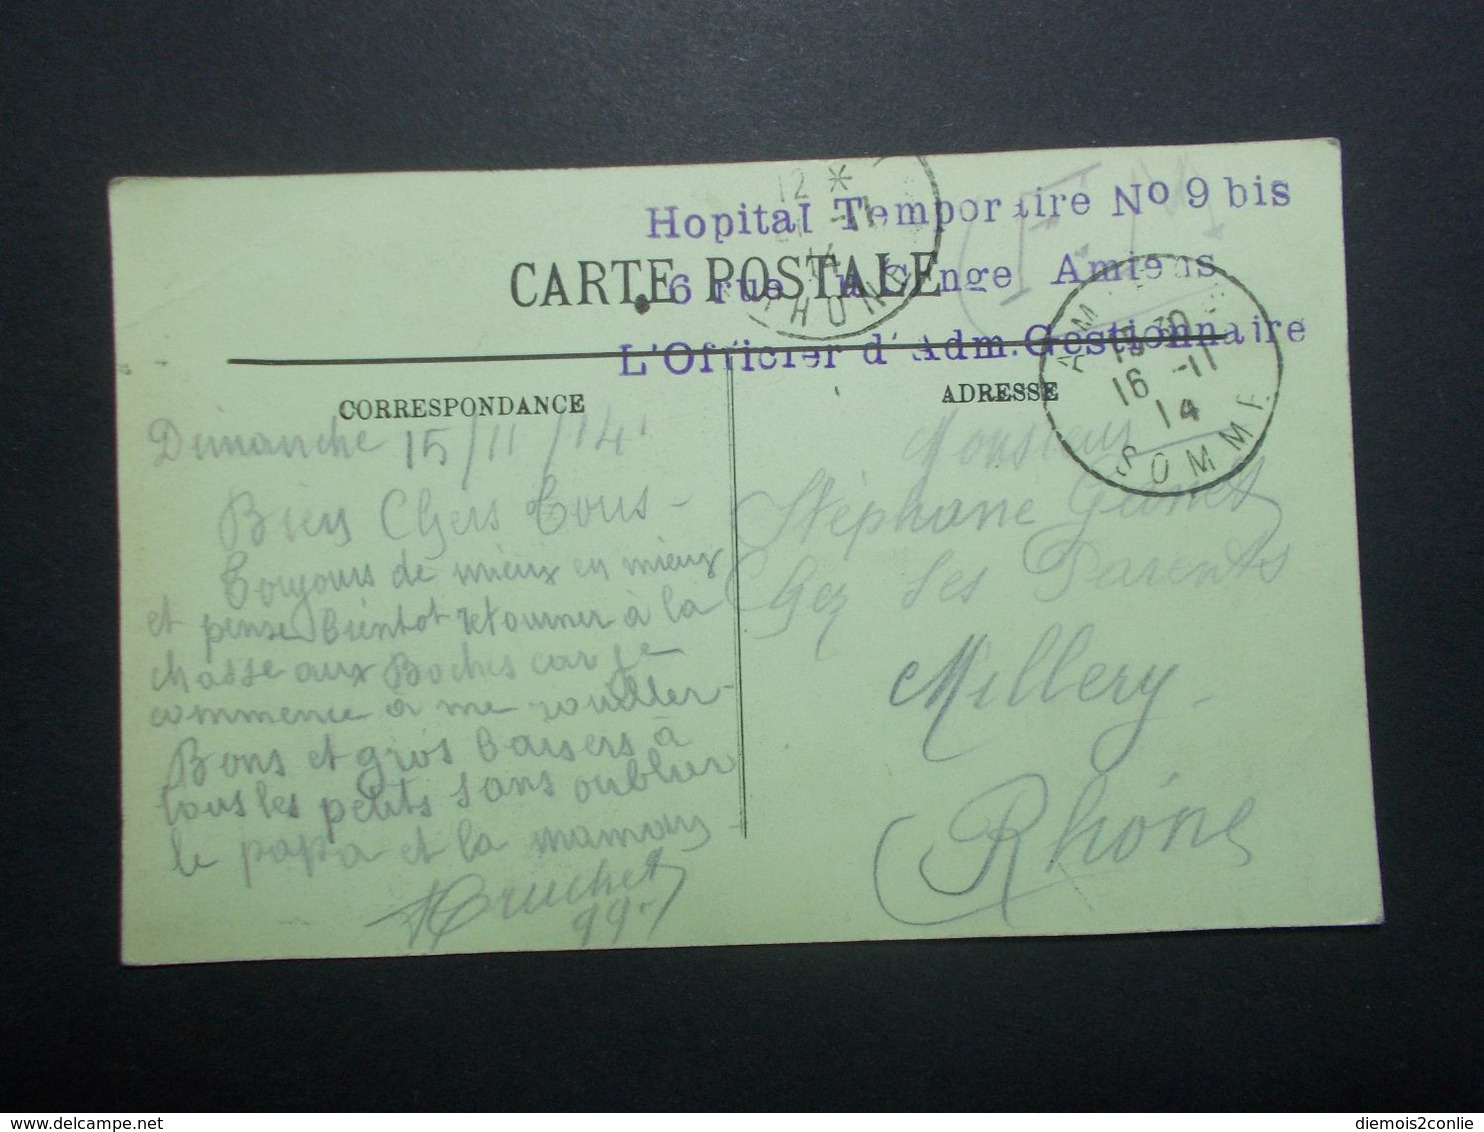 12 *
Hopital Temporaire No 9 bis
F.M
CARTE POSTALE
6 rue Amiens
RHONE
L'Officier d'Adm. Gestionnaire
16 -11
14
SOMME
CORRESPONDANCE
ADRESSE
Dimanche 15/11/14
Bien Chers Tous -
Toujours de mieux en mieux
et pense bientot retourner à la
chasse aux Boches car je
commence à me rouiller -
Bons et gros baisers à
tous les petits sans oublier
le papa et la maman -
99
Monsieur
Stéphane
Chez Ses Parents
Millery -
Rhône
delcampe.net
diemois2conlie